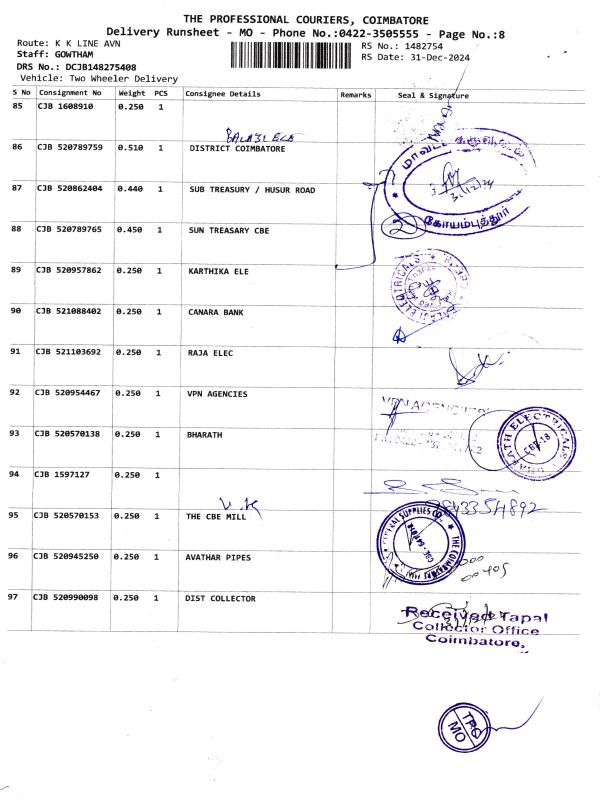 THE PROFESSIONAL COURIERS, COIMBATORE
Delivery Runsheet - MO - Phone No.:0422-3505555 - Page No.:8
Route: K K LINE AVN
RS No.: 1482754
Staff: GOWTHAM
RS Date: 31-Dec-2024
DRS No.: DCJB148275408
Vehicle: Two Wheeler Delivery
S No Consignment No Weight PCS Consignee Details Remarks Seal & Signature
85 CJB 1608910 0.250 1
BALAJI ELE
86 CJB 520789759 0.510 1 DISTRICT COIMBATORE
87 CJB 520862404 0.440 1 SUB TREASURY / HUSUR ROAD
31/12/24
88 CJB 520789765 0.450 1 SUN TREASARY CBE
2
கோயம்புத்தூர்
89 CJB 520957862 0.250 1 KARTHIKA ELE
BALAJI ELECTRICALS
90 CJB 521088402 0.250 1 CANARA BANK
91 CJB 521103692 0.250 1 RAJA ELEC
92 CJB 520954467 0.250 1 VPN AGENCIES
VPN AGENCIES
93 CJB 520570138 0.250 1 BHARATH
BHARATH ELECTRICALS
CBE-18
94 CJB 1597127 0.250 1
V.K
95 CJB 520570153 0.250 1 THE CBE MILL
THE COIMBATORE
GENERAL SUPPLIES CO.
CBE-641018
96 CJB 520945250 0.250 1 AVATHAR PIPES
97 CJB 520990098 0.250 1 DIST COLLECTOR
Received Tapal
Collector Office
Coimbatore,
TPC
MO